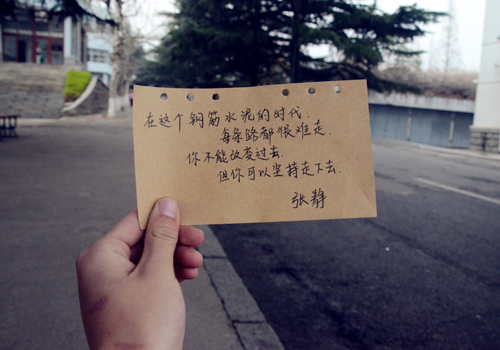 在这个钢筋水泥的时代.
每条路都很难走.
你不能改变过去.
但你可以坚持走下去.
张静